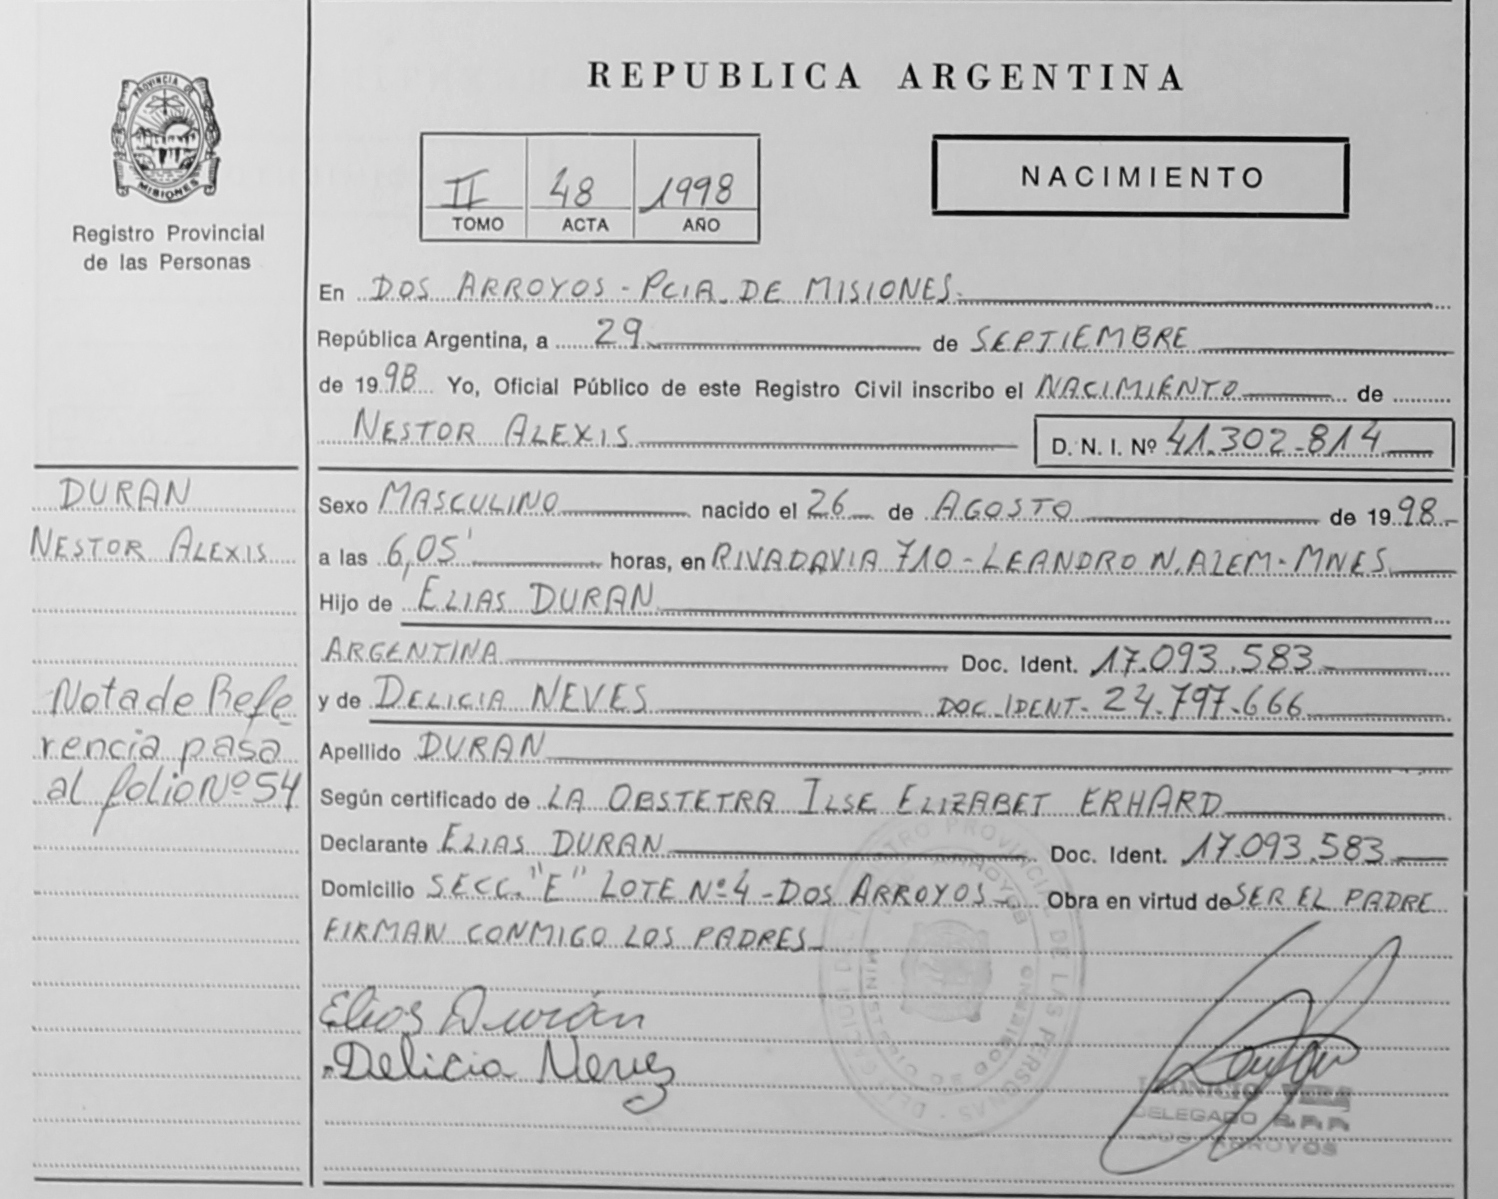 REPUBLICA ARGENTINA
PROVINCIA DE
MISIONES
Registro Provincial
de las Personas
II 48 1998
TOMO ACTA AÑO
NACIMIENTO
En DOS ARROYOS - PCIA. DE MISIONES.
República Argentina, a 29 de SEPTIEMBRE
de 1998 Yo, Oficial Público de este Registro Civil inscribo el NACIMIENTO de
NESTOR ALEXIS D. N. I. Nº 41.302.814
DURAN
NESTOR ALEXIS
Nota de Refe
rencia pasa
al folio Nº 54
Sexo MASCULINO nacido el 26 de AGOSTO de 1998
a las 6,05' horas, en RIVADAVIA 710 - LEANDRO N. ALEM - MNES
Hijo de ELIAS DURAN
ARGENTINA Doc. Ident. 17.093.583
y de DELICIA NEVES DOC. IDENT. 24.797.666
Apellido DURAN
Según certificado de LA OBSTETRA ILSE ELIZABET ERHARD
Declarante ELIAS DURAN Doc. Ident. 17.093.583
Domicilio SECC. "E" LOTE Nº 4 - DOS ARROYOS Obra en virtud de SER EL PADRE
FIRMAN CONMIGO LOS PADRES
Elias Durán
Delicia Nevez
DELEGADO
DOS ARROYOS